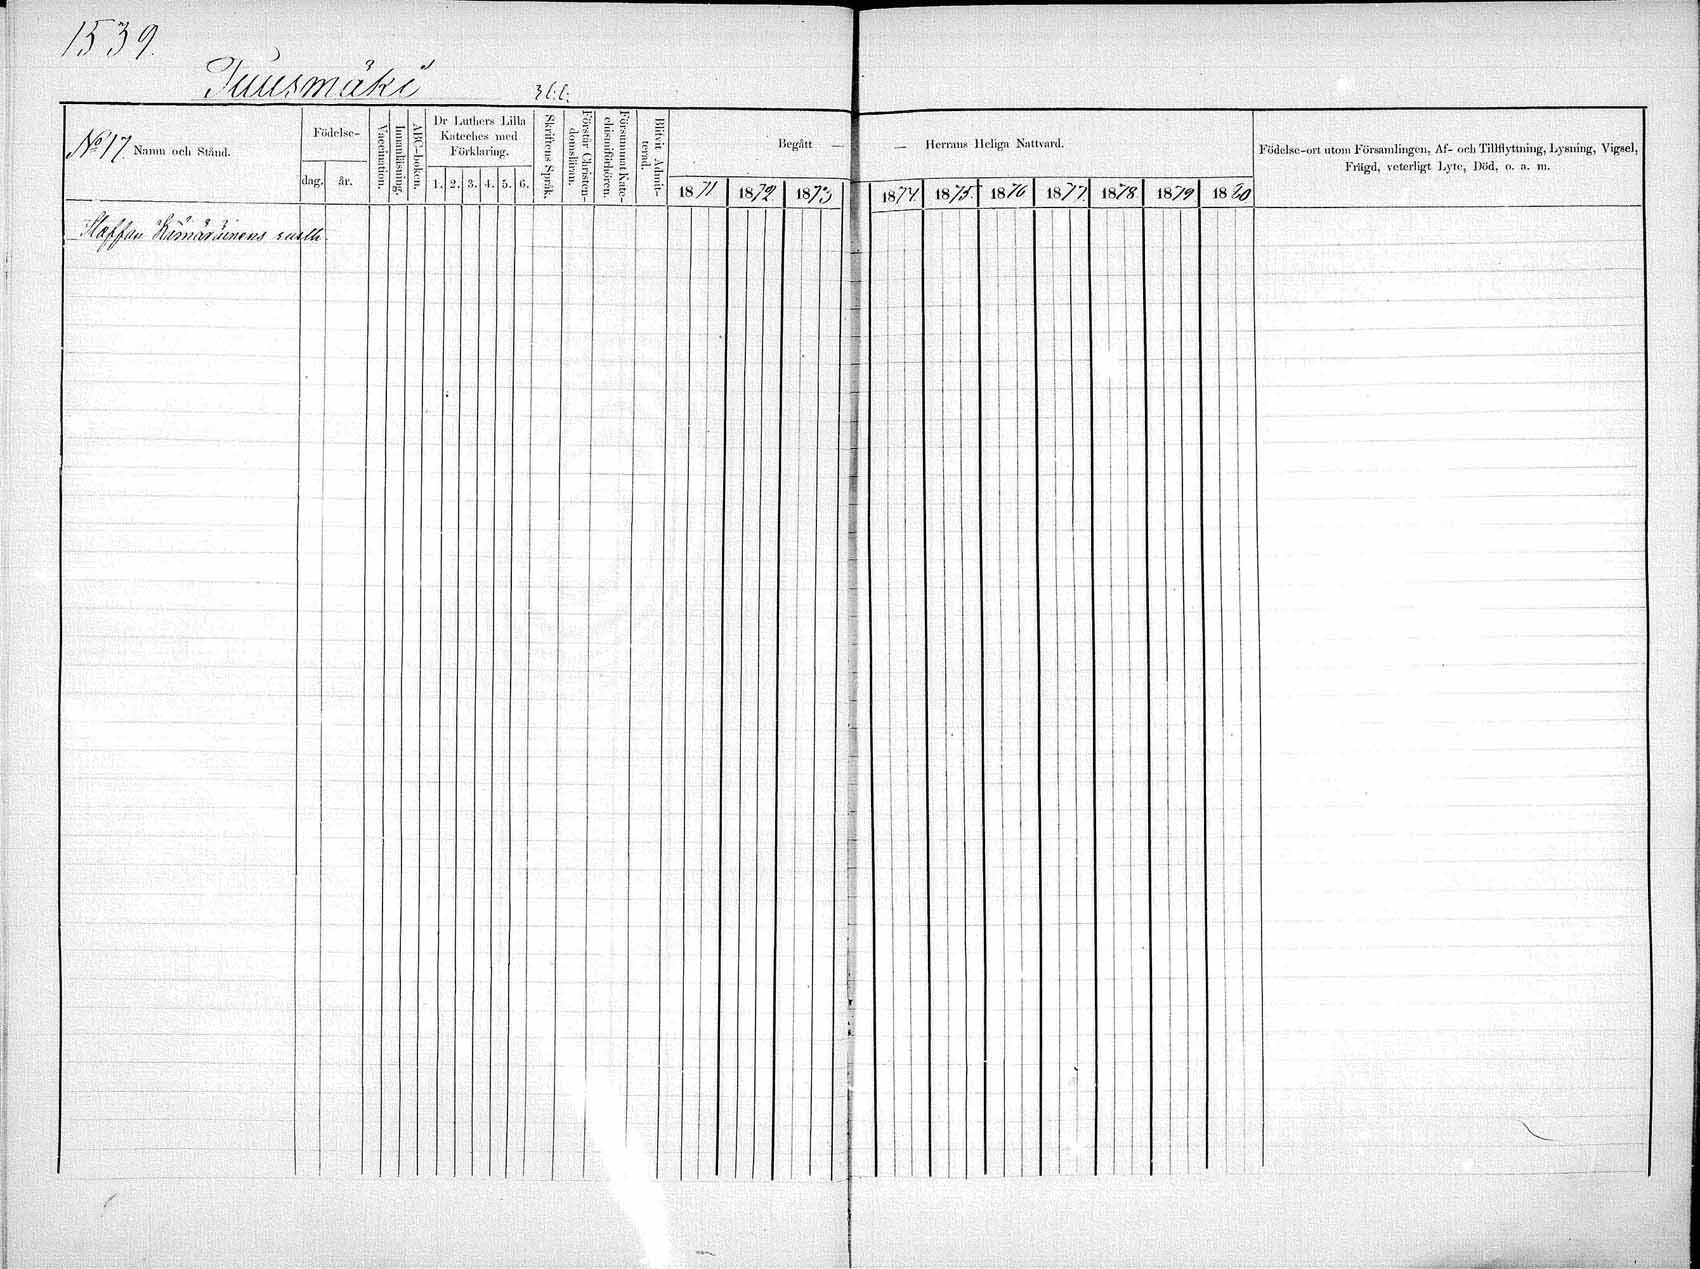 1539.
Tuusmäki
N:o 17. Namn och Stånd.
Födelse-
dag. år.
Vaccination.
Innanläsning.
ABC-boken.
Dr Luthers Lilla
Kateches med
Förklaring.
1. 2. 3. 4. 5. 6.
Skriftens Språk.
Förstår Christen-
domsläran.
Försummat Kate-
chismiförhören.
Blifvit Admit-
terad.
Begått — — Herrans Heliga Nattvard.
1871 1872 1873 1874. 1875. 1876 1877. 1878 1879 1880
Födelse-ort utom Församlingen, Af- och Tillflyttning, Lysning, Vigsel,
Frägd, veterligt Lyte, Död, o. a. m.
Staffan Hämäläinens